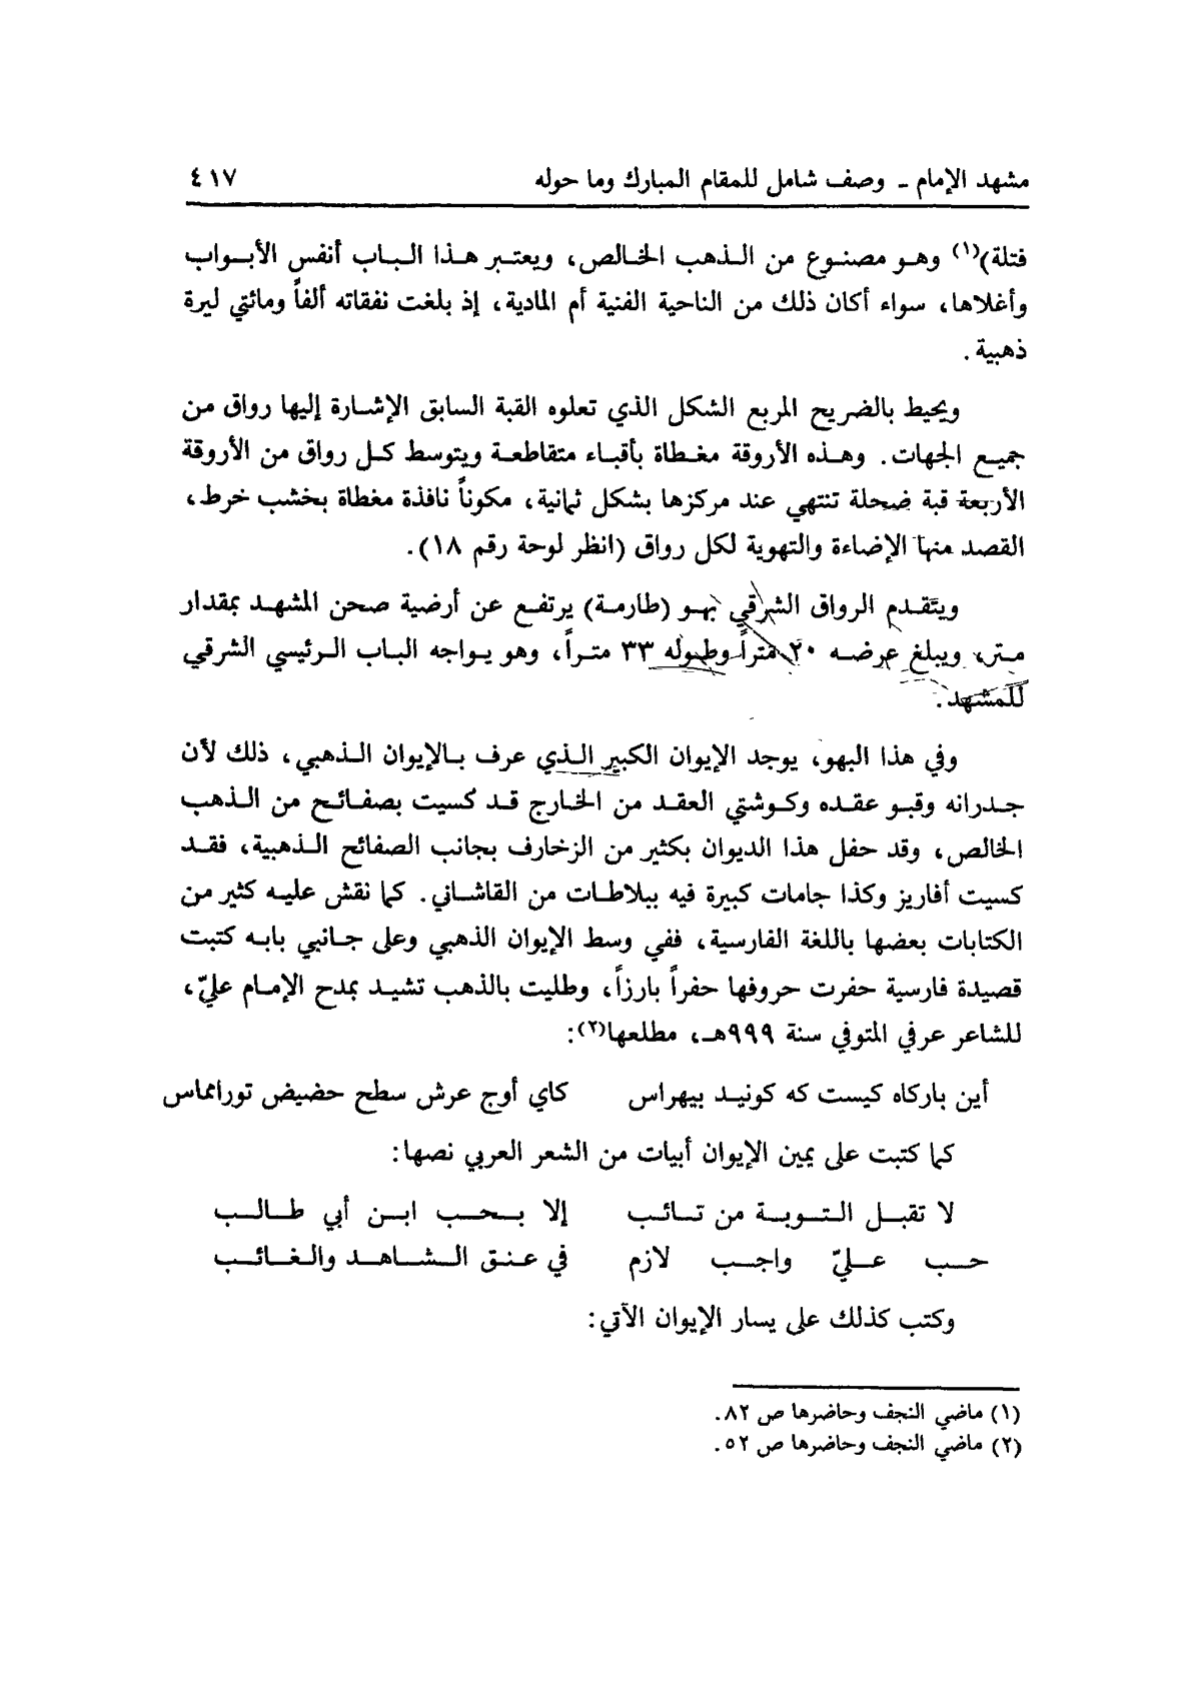 مشهد الإمام - وصف شامل للمقام المبارك وما حوله ٤١٧
فتلة)(١) وهو مصنوع من الذهب الخالص، ويعتبر هذا الباب أنفس الأبواب
وأغلاها، سواء أكان ذلك من الناحية الفنية أم المادية، إذ بلغت نفقاته ألفاً ومائتي ليرة
ذهبية.
ويحيط بالضريح المربع الشكل الذي تعلوه القبة السابق الإشارة إليها رواق من
جميع الجهات. وهذه الأروقة مغطاة بأقباء متقاطعة ويتوسط كل رواق من الأروقة
الأربعة قبة ضحلة تنتهي عند مركزها بشكل ثمانية، مكوناً نافذة مغطاة بخشب خرط،
القصد منها الإضاءة والتهوية لكل رواق (انظر لوحة رقم ١٨).
ويتقدم الرواق الشرقي بهو (طارمة) يرتفع عن أرضية صحن المشهد بمقدار
متر، ويبلغ عرضه ٢٠ متراً وطوله ٣٣ متراً، وهو يواجه الباب الرئيسي الشرقي
للمشهد.
وفي هذا البهو، يوجد الإيوان الكبير الذي عرف بالإيوان الذهبي، ذلك لأن
جدرانه وقبو عقده وكوشتي العقد من الخارج قد كسيت بصفائح من الذهب
الخالص، وقد حفل هذا الديوان بكثير من الزخارف بجانب الصفائح الذهبية، فقد
كسيت أفاريز وكذا جامات كبيرة فيه ببلاطات من القاشاني. كما نقش عليه كثير من
الكتابات بعضها باللغة الفارسية، ففي وسط الإيوان الذهبي وعلى جانبي بابه كتبت
قصيدة فارسية حفرت حروفها حفراً بارزاً، وطليت بالذهب تشيد بمدح الإمام عليّ،
للشاعر عرفي المتوفي سنة ٩٩٩هـ، مطلعها(٢):
أين باركاه كيست كه كونيد بيهراس كاي أوج عرش سطح حضيض تورانماس
كما كتبت على يمين الإيوان أبيات من الشعر العربي نصها:
لا تقبل التوبة من تائب إلا بحب ابن أبي طالب
حب عليّ واجب لازم في عنق الشاهد والغائب
وكتب كذلك على يسار الإيوان الآتي:
(١) ماضي النجف وحاضرها ص ٨٢.
(٢) ماضي النجف وحاضرها ص ٥٢.